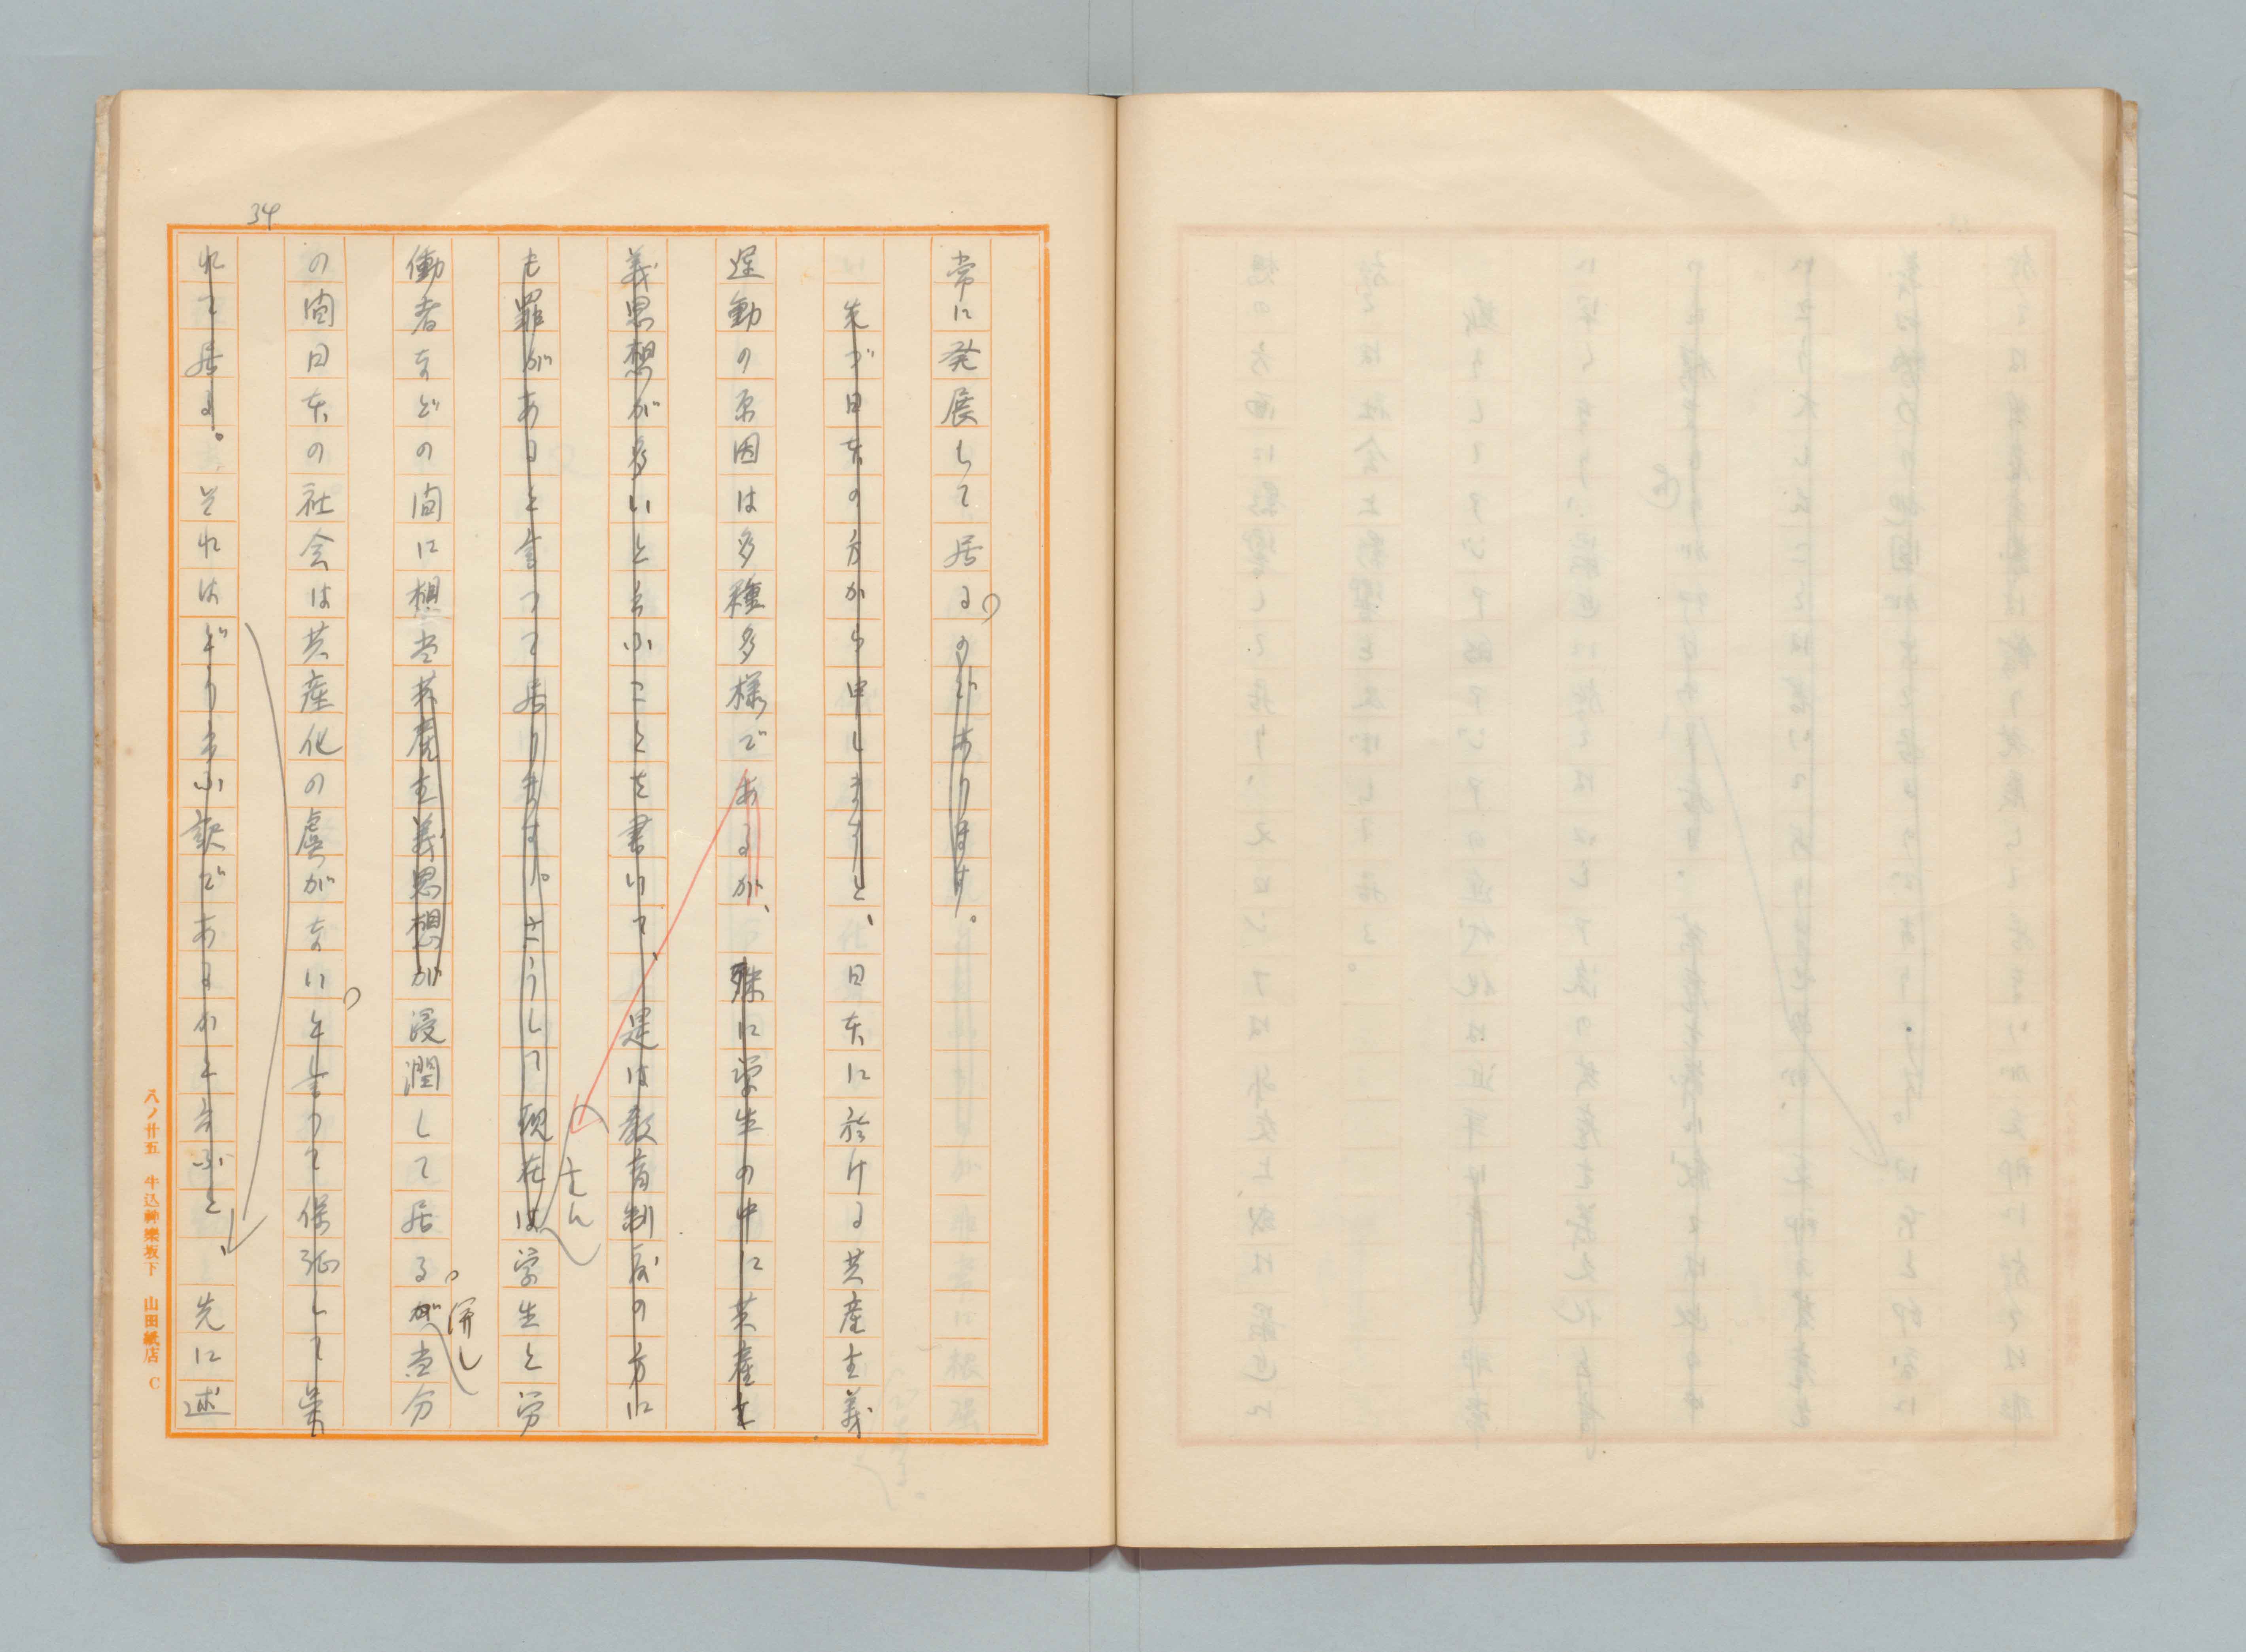 34
常に発展して居る。のであります。
先づ日本の方から申しますと、日本に於ける共産主義
運動の原因は多種多様であるが、殊に学生の中に共産主
義思想が多いと云ふことを書いて、是は教育制度の方に
も罪があると言つて居ります。さうして現在は学生と労
働者などの間に想当共産主義思想が浸潤して居る。が当分
併し
の間日本の社会は共産化の虞がない。と言つて保証して
れて居る。それはどう云ふ訳であるかと云ふと、先に述
八ノ廿五 牛込神樂坂下 山田紙店 C